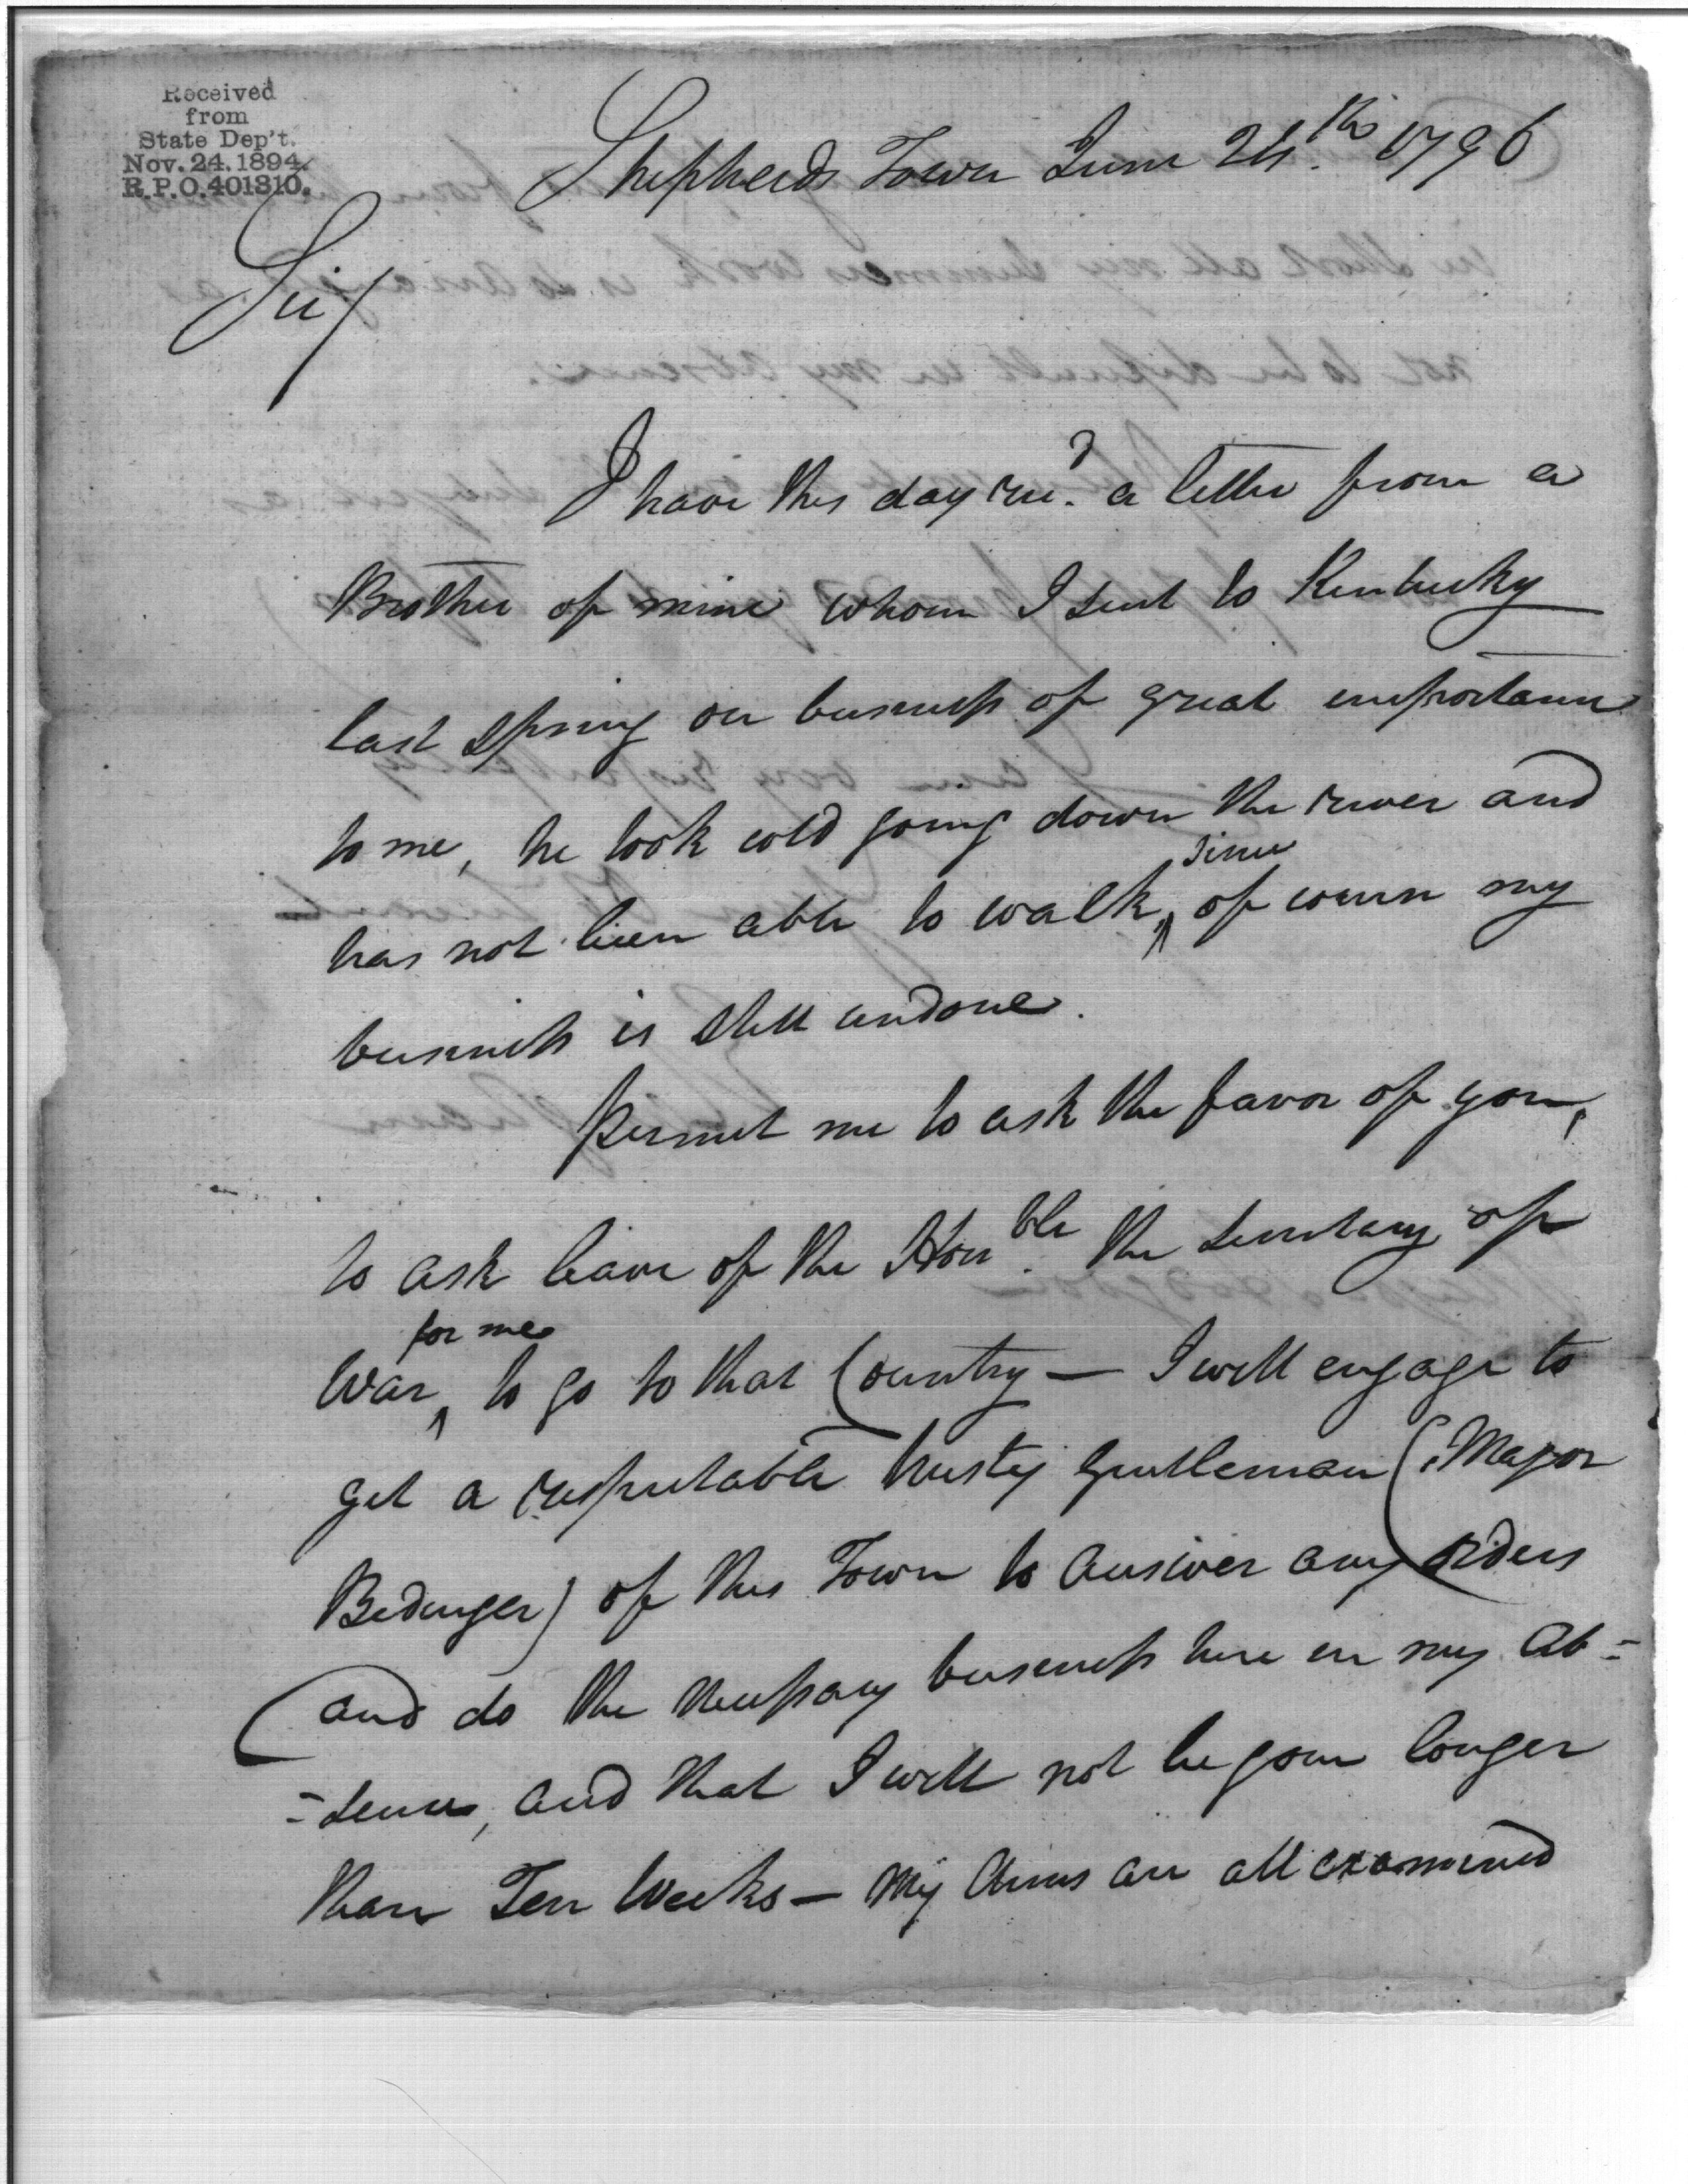 Received
from
State Dep't.
Nov. 24. 1894.
R.P.O. 401310.
Shepherds Town June 24th. 1796
Sir/
I have this day recd. a letter from a
Brother of mine whom I sent to Kentucky
last spring on business of great importance
to me, he took cold going down the river and
has not been able to walk, since of course my
business is still undone.
Permit me to ask the favor of you,
to ask leave of the Honble. the Secretary of
War for me to go to that Country — I will engage to
get a respectable trusty gentleman (Major
Bedinger) of this Town to answer any orders
and do the necessary business here in my Ab=
=sence, and that I will not be gone longer
than Ten Weeks — My Arms are all examined